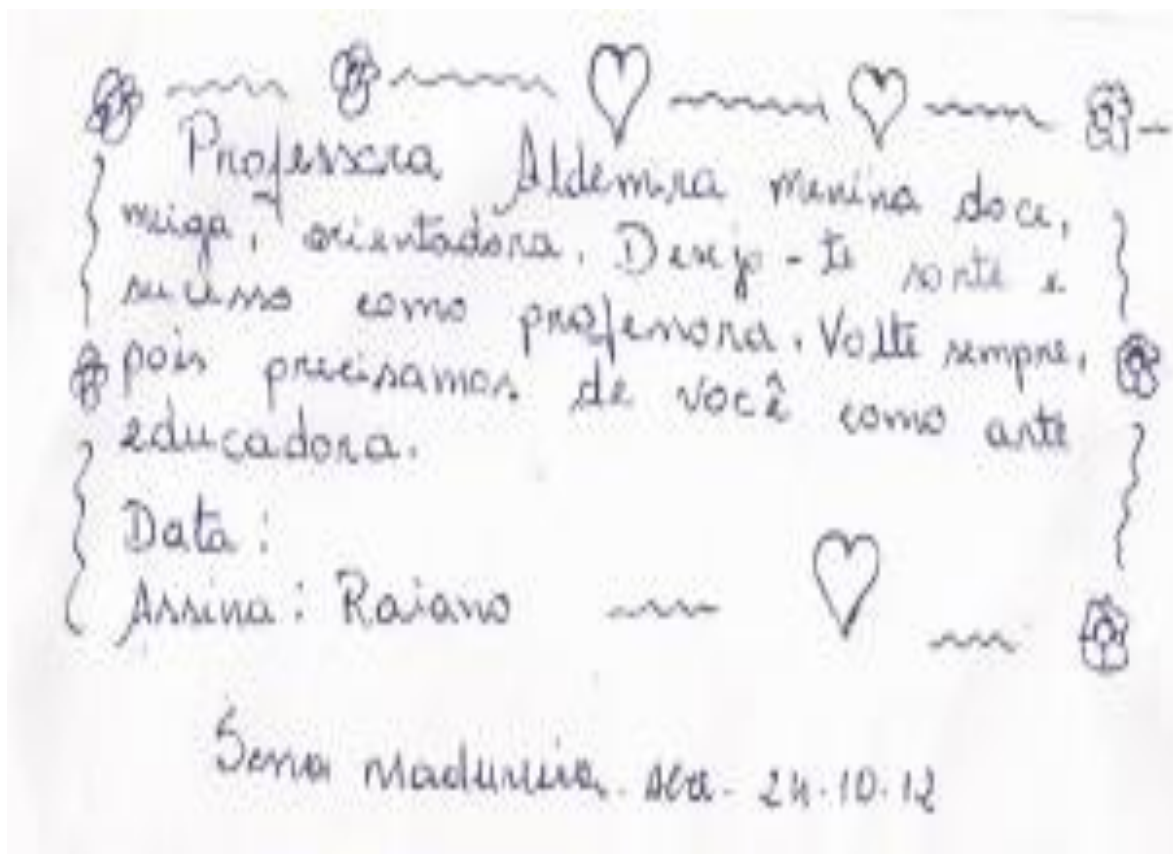 Professora Aldemira menina doce,
meiga, orientadora. Desejo-te sorte e
sucesso como professora. Volte sempre,
pois precisamos de você como arte
educadora.
Data:
Assina: Raiano
Sena Madureira. Acre. 24.10.12